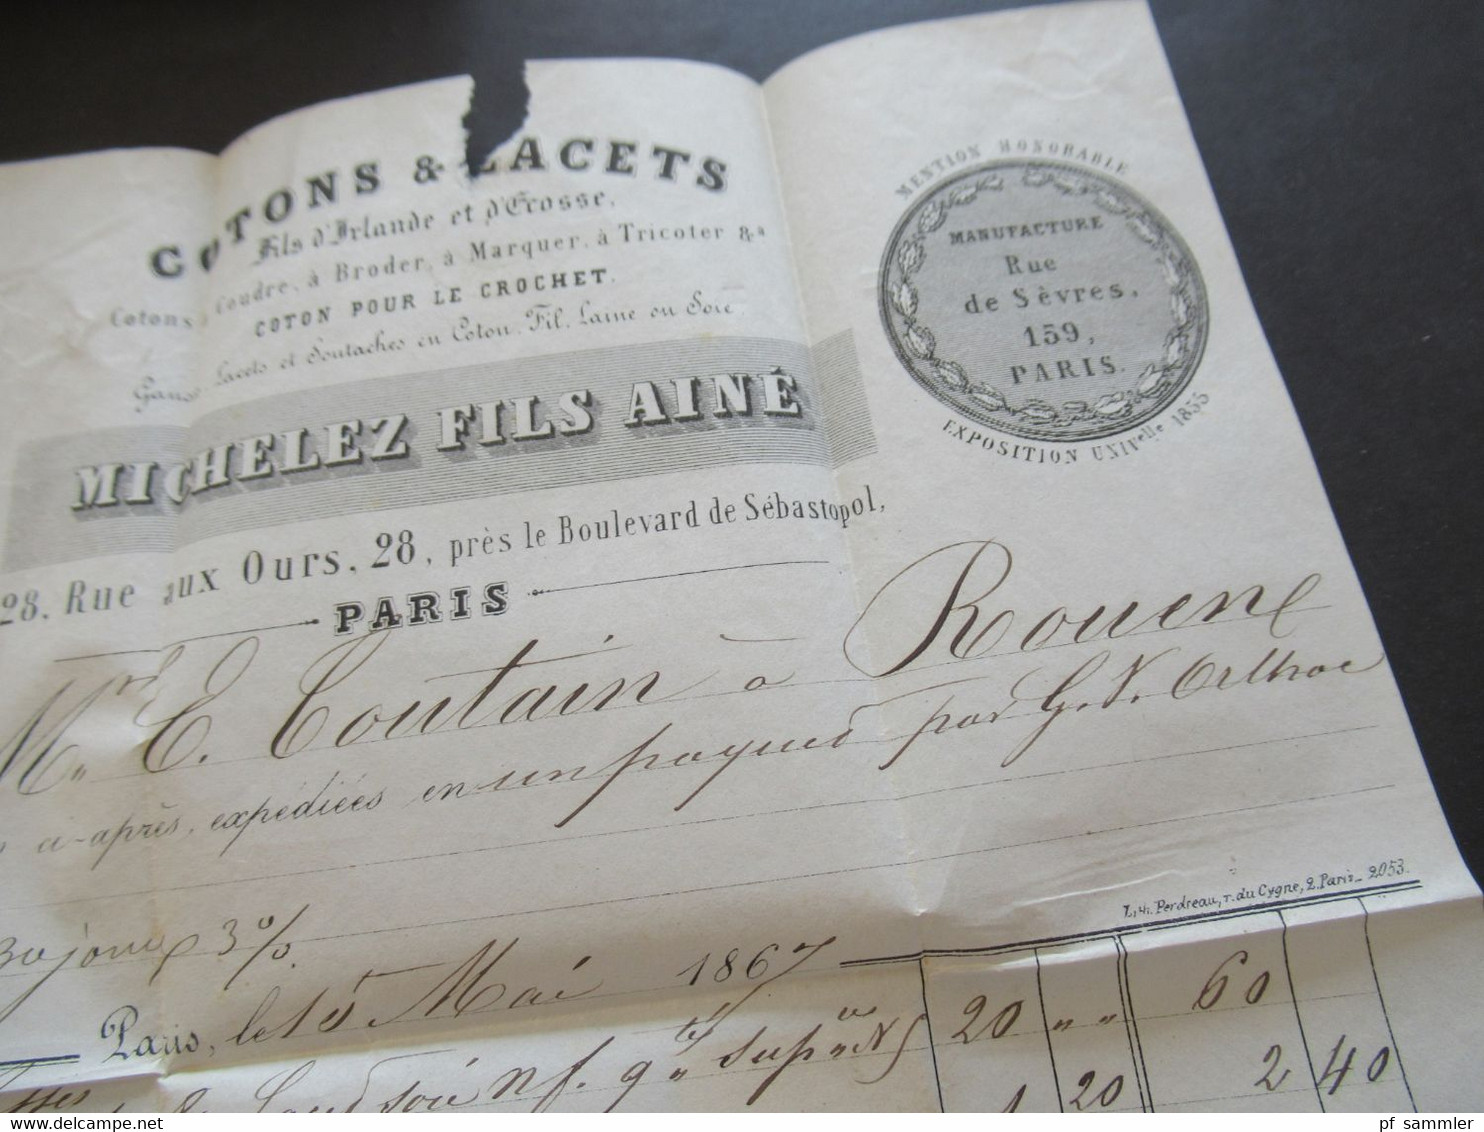 COTONS & LACETS
Fils d'Irlande et d'Ecosse,
Cotons à Coudre, à Broder, à Marquer, à Tricoter &a
COTON POUR LE CROCHET.
Lacets et Soutaches en Coton, Fil, Laine ou Soie
MICHELEZ FILS AINÉ
28, Rue aux Ours, 28, près le Boulevard de Sébastopol,
PARIS
MENTION HONORABLE
MANUFACTURE
Rue
de Sèvres,
159,
PARIS.
EXPOSITION UNIVelle 1855
Mr. E. Coutain à Rouen
ci-après, expédiées en un paquet par
Lith. Perdreau, r. du Cygne, 2. Paris_ 2053.
30 jours 3%.
Paris, le 15 Mai 1867
20 " " 60
1 20 2 40